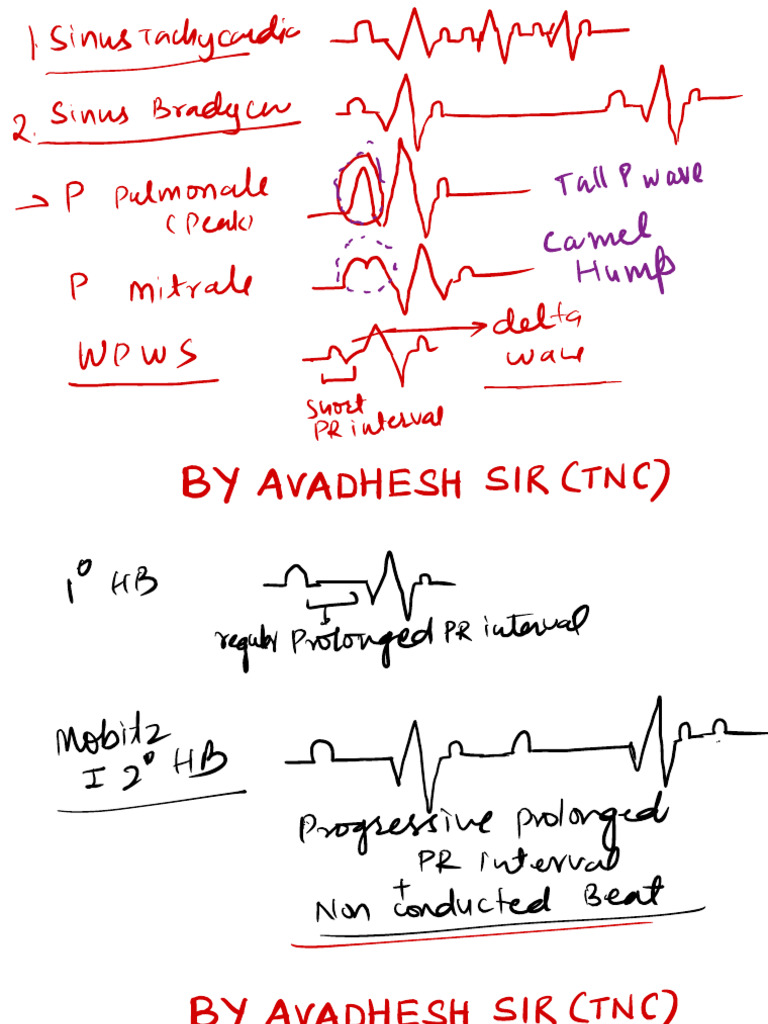 1. Sinus Tachycardia
2. Sinus Bradycar
→ P Pulmonale
(Peak)
Tall P wave
P mitrale
Camel
Hump
WPWS
delta
wave
Short
PR interval
BY AVADHESH SIR (TNC)
1° HB
regular Prolonged PR interval
Mobitz
I 2° HB
Progressive prolonged
PR interval
+
Non conducted Beat
BY AVADHESH SIR (TNC)